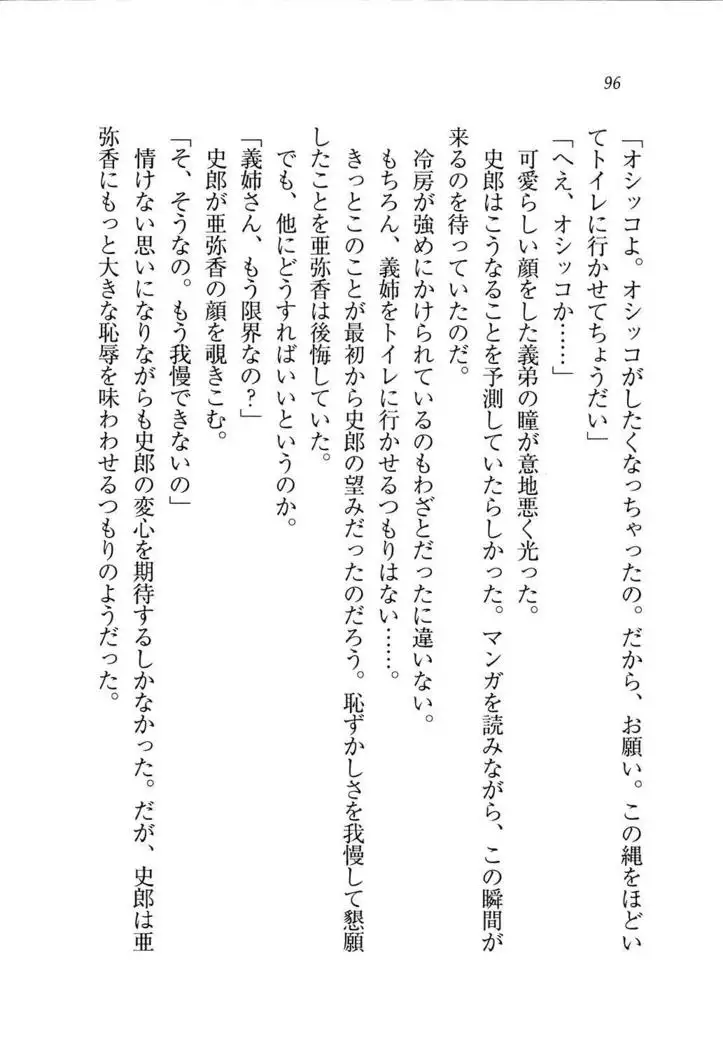 96
「オシッコよ。オシッコがしたくなっちゃったの。だから、お願い。この縄をほどい
てトイレに行かせてちょうだい」
「へえ、オシッコか……」
可愛らしい顔をした義弟の瞳が意地悪く光った。
史郎はこうなることを予測していたらしかった。マンガを読みながら、この瞬間が
来るのを待っていたのだ。
冷房が強めにかけられているのもわざとだったに違いない。
もちろん、義姉をトイレに行かせるつもりはない……。
きっとこのことが最初から史郎の望みだったのだろう。恥ずかしさを我慢して懇願
したことを亜弥香は後悔していた。
でも、他にどうすればいいというのか。
「義姉さん、もう限界なの？」
史郎が亜弥香の顔を覗きこむ。
「そ、そうなの。もう我慢できないの」
情けない思いになりながらも史郎の変心を期待するしかなかった。だが、史郎は亜
弥香にもっと大きな恥辱を味わわせるつもりのようだった。